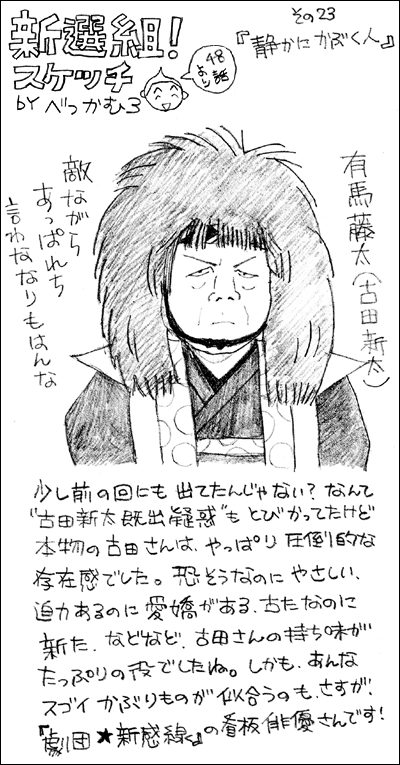 新選組!
スケッチ
BY べっかむ3
48話より
その23
『静かにかぶく人』
有馬藤太(古田新太)
敵ながら
あっぱれち
言わななりもはんな
少し前の回にも出てたんじゃない？なんて
"古田新太既出疑惑"もとびかってたけど
本物の古田さんは、やっぱり圧倒的な
存在感でした。恐そうなのにやさしい、
迫力あるのに愛嬌がある、古たなのに
新た、などなど、古田さんの持ち味が
たっぷりの役でしたね。しかも、あんな
スゴイかぶりものが似合うのも、さすが、
『劇団★新感線』の看板俳優さんです!